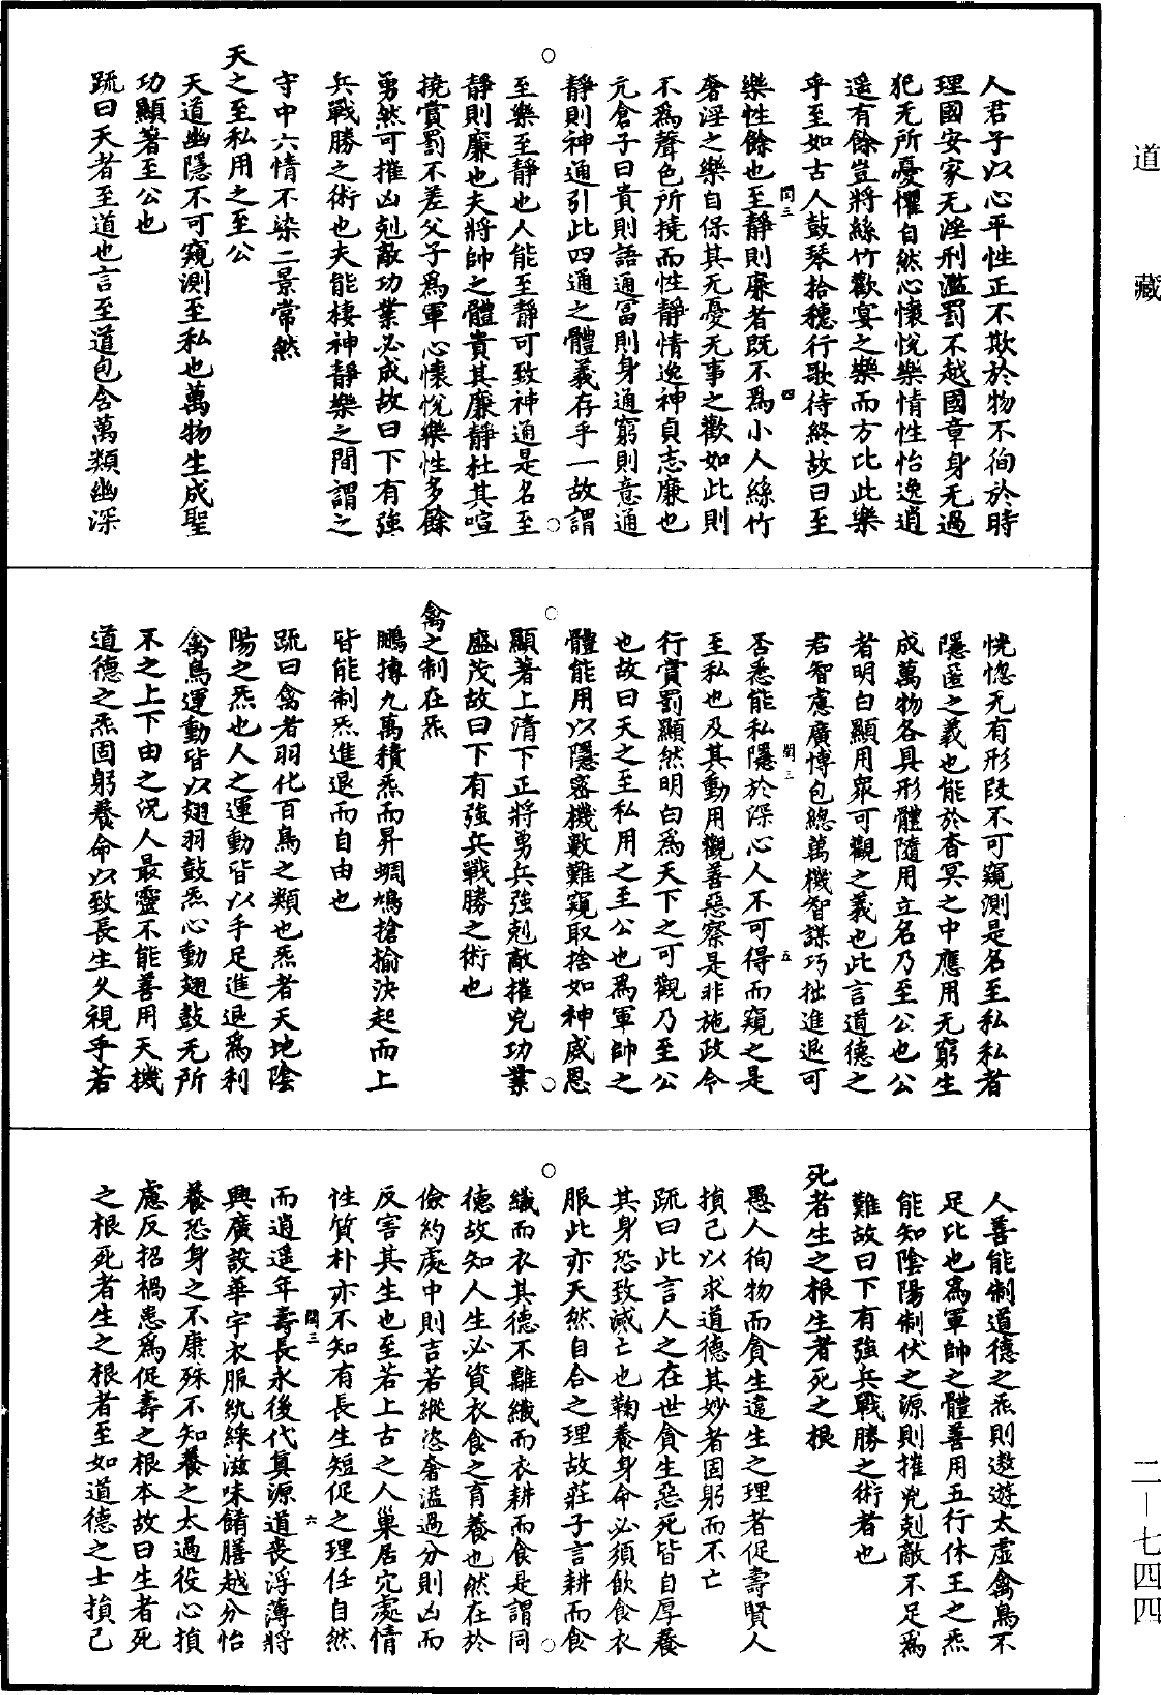 道藏
人君子以心平性正不欺於物不徇於時
理國安家无淫刑濫罰不越國章身无過
犯无所憂懼自然心懷悅樂情性怡逸逍
遥有餘豈將絲竹歡宴之樂而方比此樂
乎至如古人鼓琴拾穗行歌待終故曰至
樂性餘也至靜則廉者既不為小人絲竹
閏三
四
奢淫之樂自保其无憂无事之歡如此則
不為聲色所撓而性靜情逸神貞志廉也
亢倉子曰貴則語通冨則身通窮則意通
靜則神通引此四通之體義存乎一故謂
至樂至靜也人能至靜可致神通是名至
靜則廉也夫將帥之體貴其廉靜杜其喧
撓賞罰不差父子為軍心懷悅樂性多餘
勇然可摧凶剋敵功業必成故曰下有強
兵戰勝之術也夫能棲神靜樂之間謂之
守中六情不染二景常然
天之至私用之至公
天道幽隱不可窺測至私也萬物生成聖
功顯著至公也
疏曰天者至道也言至道包含萬類幽深
恍惚无有形段不可窺測是名至私私者
隱匿之義也能於杳冥之中應用无窮生
成萬物各具形體隨用立名乃至公也公
者明白顯用衆可觀之義也此言道德之
君智慮廣博包總萬機智謀巧拙進退可
否悉能私隱於深心人不可得而窺之是
閏三
五
至私也及其動用觀善惡察是非施政令
行賞罰顯然明白為天下之可觀乃至公
也故曰天之至私用之至公也為軍帥之
體能用以隱密機數難窺取捨如神威恩
顯著上清下正將勇兵強剋敵摧兇功業
盛茂故曰下有強兵戰勝之術也
禽之制在炁
鵬摶九萬積炁而昇蜩鳩搶揄決起而上
皆能制炁進退而自由也
疏曰禽者羽化百鳥之類也炁者天地陰
陽之炁也人之運動皆以手足進退為利
禽鳥運動皆以翅羽鼓炁心動翅鼓无所
不之上下由之況人最靈不能善用天機
道德之炁固躬養命以致長生久視乎若
人善能制道德之炁則遨遊太虛禽鳥不
足比也為軍帥之體善用五行休王之炁
能知陰陽制伏之源則摧兇剋敵不足為
難故曰下有強兵戰勝之術者也
死者生之根生者死之根
愚人徇物而貪生違生之理者促壽賢人
損己以求道德其妙者固躬而不亡
疏曰此言人之在世貪生惡死皆自厚養
其身恐致滅亡也鞠養身命必須飲食衣
服此亦天然自合之理故莊子言耕而食
織而衣其德不離織而衣耕而食是謂同
德故知人生必資衣食之育養也然在於
儉約處中則吉若縱恣奢溢過分則凶而
反害其生也至若上古之人巢居穴處情
性質朴亦不知有長生短促之理任自然
而逍遥年壽長永後代真源道喪浮薄將
閏三
六
興廣設華宇衣服紈綵滋味餚膳越分怡
養恐身之不康殊不知養之太過役心損
慮反招禍患為促壽之根本故曰生者死
之根死者生之根者至如道德之士損己
二—七四四